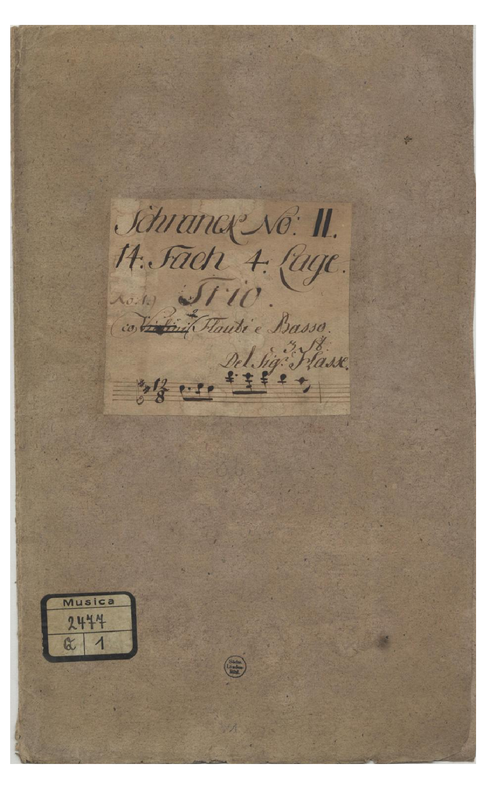 Schranck No: II.
14. Fach 4. Lage.
Trio.
co Violini Flauti e Basso.
3. 18.
Del Sigr. Hasse.
12
8
Musica
2477
Q 1